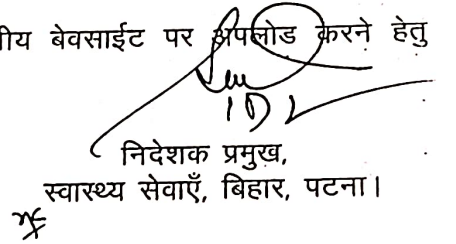 ीय बेवसाईट पर अपलोड करने हेतु
निदेशक प्रमुख,
स्वास्थ्य सेवाएँ, बिहार, पटना।